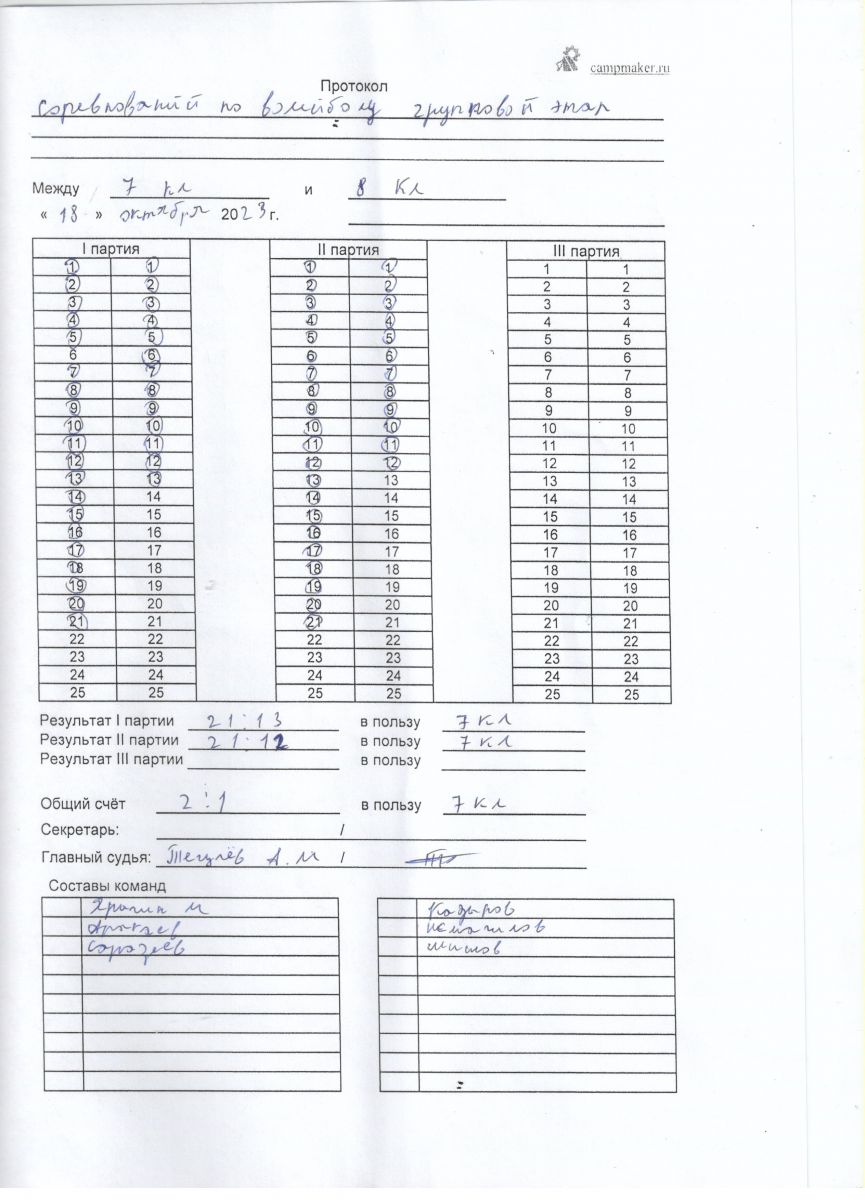 campmaker.ru
Протокол
соревнований по волейболу групповой этап
Между 7 кл и 8 Кл
« 18 » октября 2023 г.
I партия II партия III партия
1 1 1 1 1 1
2 2 2 2 2 2
3 3 3 3 3 3
4 4 4 4 4 4
5 5 5 5 5 5
6 6 6 6 6 6
7 7 7 7 7 7
8 8 8 8 8 8
9 9 9 9 9 9
10 10 10 10 10 10
11 11 11 11 11 11
12 12 12 12 12 12
13 13 13 13 13 13
14 14 14 14 14 14
15 15 15 15 15 15
16 16 16 16 16 16
17 17 17 17 17 17
18 18 18 18 18 18
19 19 19 19 19 19
20 20 20 20 20 20
21 21 21 21 21 21
22 22 22 22 22 22
23 23 23 23 23 23
24 24 24 24 24 24
25 25 25 25 25 25
Результат I партии 21:13 в пользу 7 кл
Результат II партии 21:12 в пользу 7 кл
Результат III партии в пользу
Общий счёт 2:1 в пользу 7 кл
Секретарь: /
Главный судья: А.М /
Составы команд
Кадыров